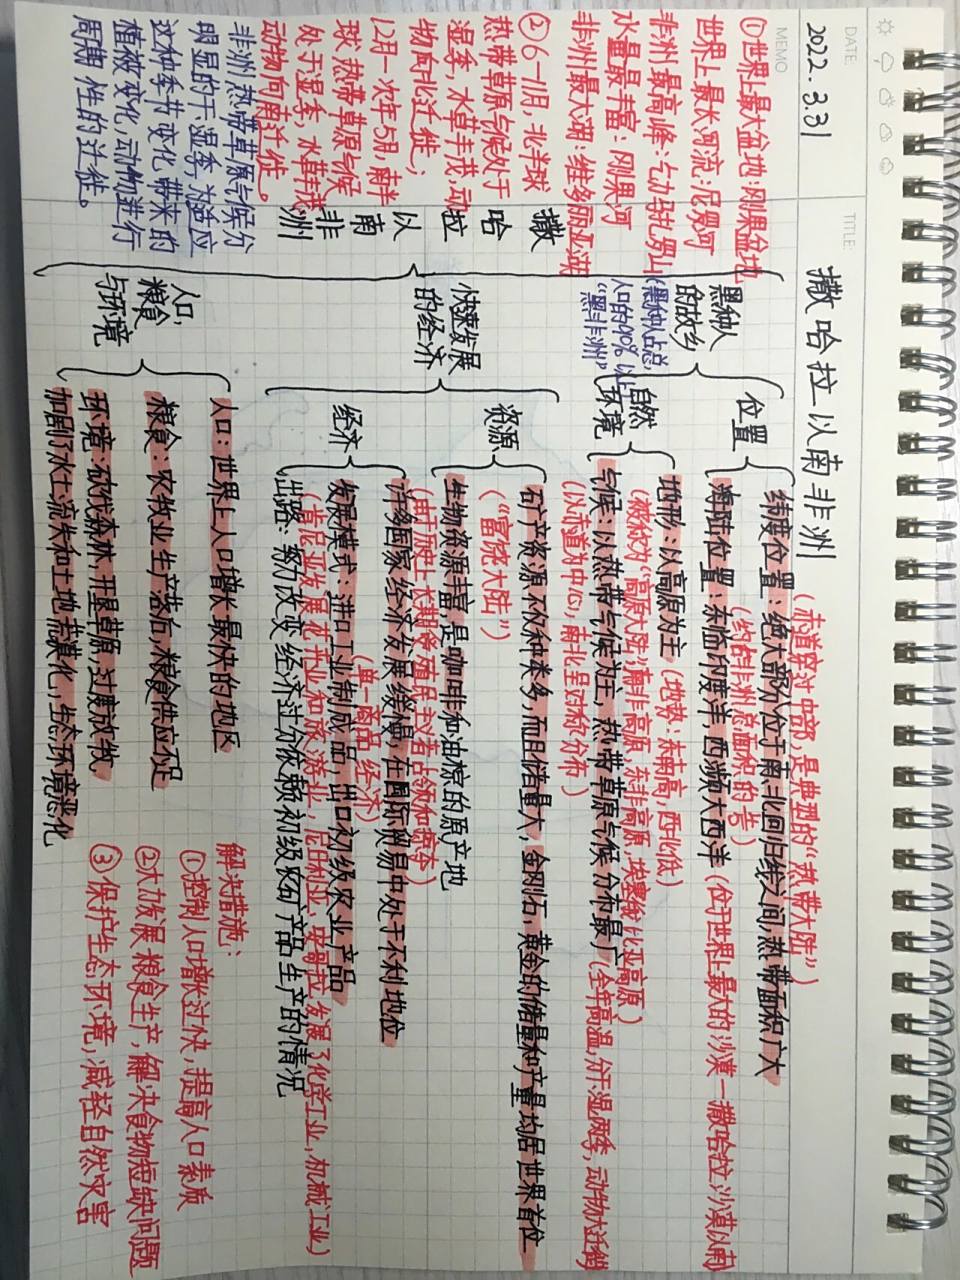 DATE:
2022.3.31
MEMO
TITLE:
撒哈拉以南非洲
①世界最大盆地:刚果盆地
世界上最长河流:尼罗河
非洲最高峰:乞力马扎罗山
水量最丰富:刚果河
非洲最大湖:维多丽亚湖
②6-11月,北半球
热带草原气候处于
湿季,水草丰茂,动
物向北迁徙;
12月-次年5月,南半
球热带草原气候
处于湿季,水草丰茂,
动物向南迁徙。
非洲热带草原气候分
明显的干湿季,为适应
这种季节变化,带来的
植被变化,动物进行
周期性的迁徙。
撒哈拉以南非洲
黑种人的故乡
(黑种人占总人口的90%以上
"黑非洲"
位置
(赤道穿过中部,是典型的"热带大陆")
纬度位置:绝大部分位于南北回归线之间,热带面积广大
(约占非洲总面积的
海陆位置:东临印度洋,西濒大西洋(位于世界上最大的沙漠—撒哈拉沙漠以南)
自然环境
地形:以高原为主(地势:东南高,西北低)
(被称为"高原大陆",南非高原,东非高原,埃塞俄比亚高原)
气候:以热带气候为主,热带草原气候分布最广(全年高温,分干、湿两季,动物大迁徙)
(以赤道为中心,南北呈对称分布)
快速发展的经济
资源
矿产资源不仅种类多,而且储量大,金刚石,黄金的储量和产量均居世界首位
("富饶大陆")
生物资源丰富,是咖啡和油棕的原产地
经济
(由于历史上长期受殖民主义者占领和掠夺)
许多国家经济发展缓慢,在国际贸易中处于不利地位
(单一商品经济)
发展模式:进口工业制成品,出口初级农业产品
(肯尼亚发展花卉业和旅游业,尼日利亚、安哥拉发展了化学工业,机械工业)
出路:努力改变经济过分依赖初级农矿产品生产的情况
人口,粮食与环境
人口:世界上人口增长最快的地区
粮食:农牧业生产落后,粮食供应不足
环境:砍伐森林,开垦草原,过度放牧
加剧了水土流失和土地荒漠化,生态环境恶化
解决措施:
①控制人口增长过快,提高人口素质
②大力发展粮食生产,解决食物短缺问题
③保护生态环境,减轻自然灾害